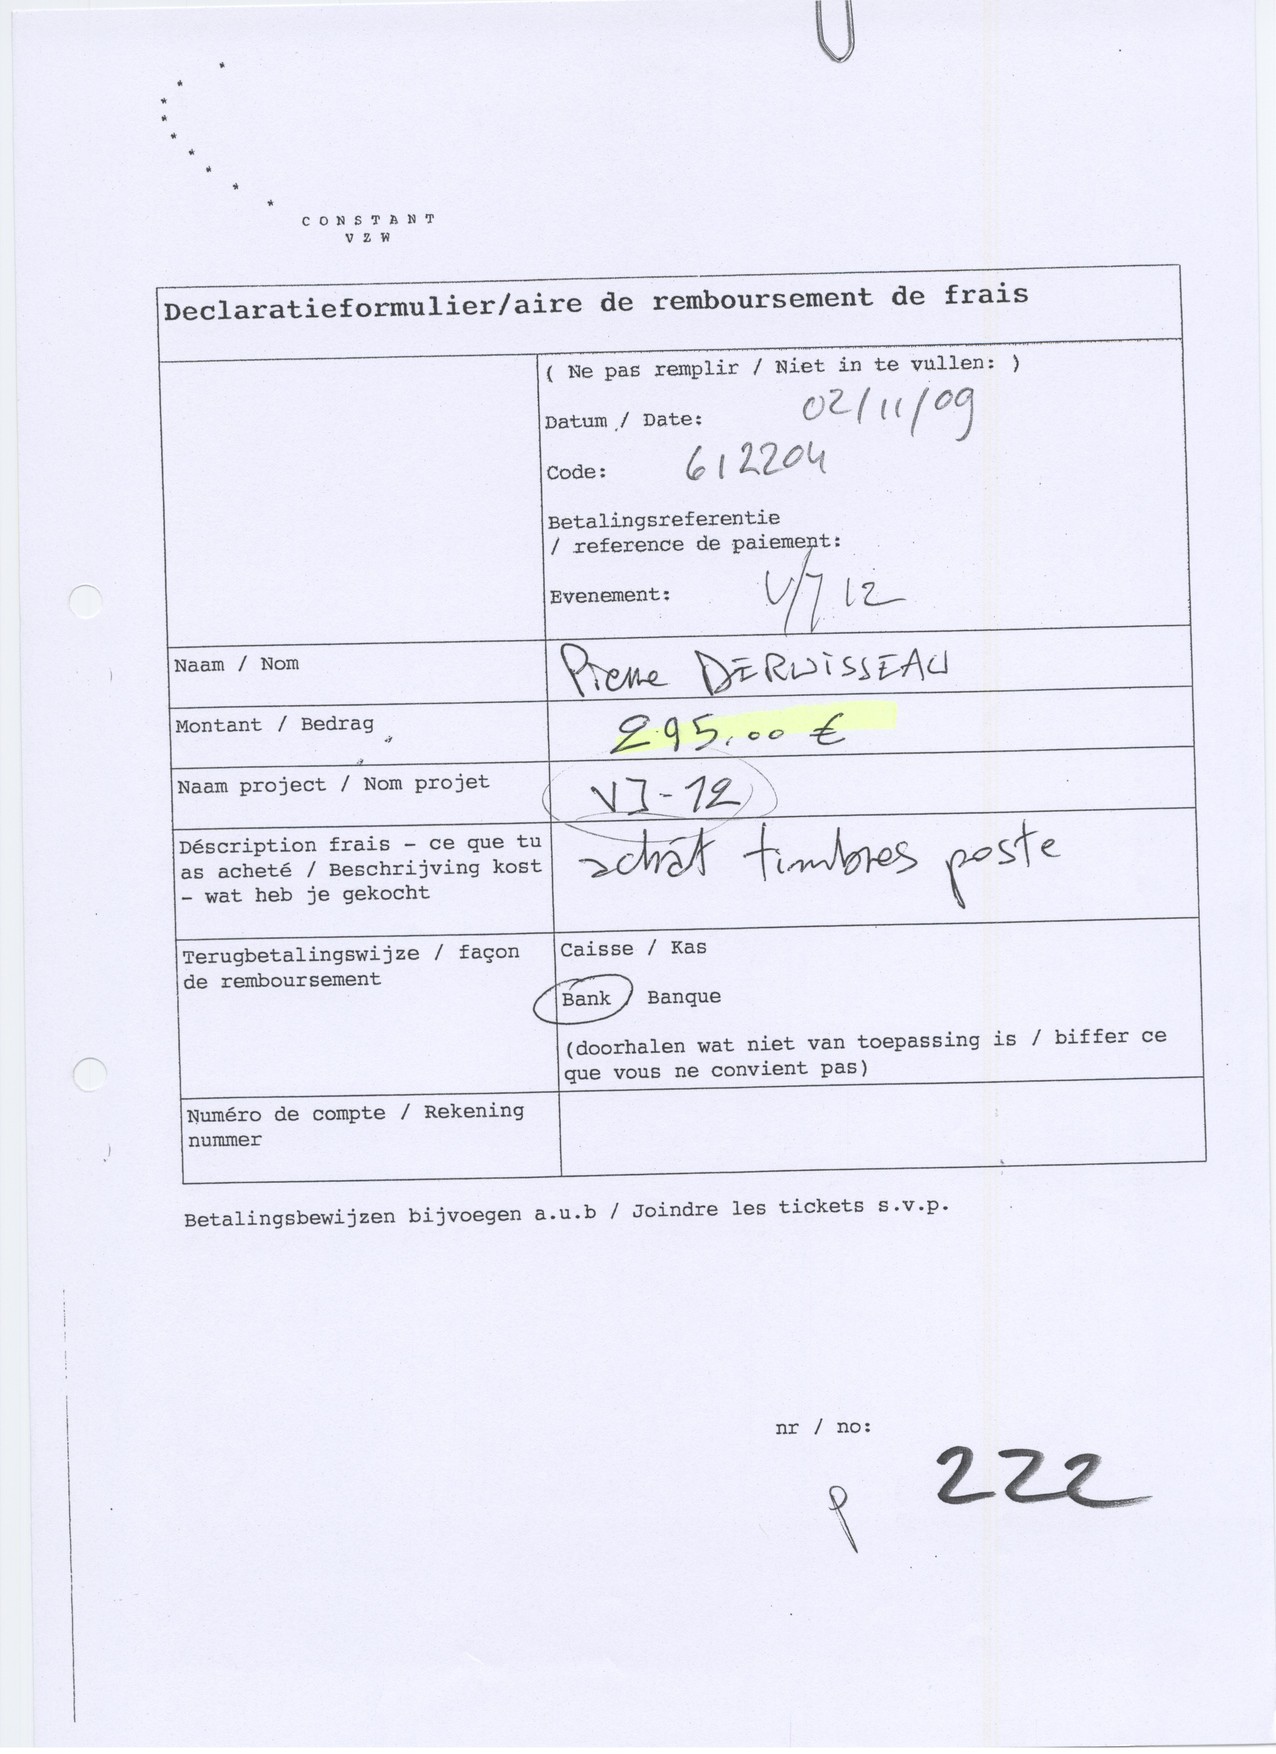 CONSTANT
VZW
Declaratieformulier/aire de remboursement de frais
( Ne pas remplir / Niet in te vullen: )
Datum / Date: 02/11/09
Code: 612204
Betalingsreferentie
/ reference de paiement:
Evenement: VJ12
Naam / Nom Pierre
Montant / Bedrag 295.00 €
Naam project / Nom projet VJ-12
Déscription frais - ce que tu
as acheté / Beschrijving kost
- wat heb je gekocht
achât timbres poste
Terugbetalingswijze / façon
de remboursement
Caisse / Kas
Bank / Banque
(doorhalen wat niet van toepassing is / biffer ce
que vous ne convient pas)
Numéro de compte / Rekening
nummer
Betalingsbewijzen bijvoegen a.u.b / Joindre les tickets s.v.p.
nr / no:
222